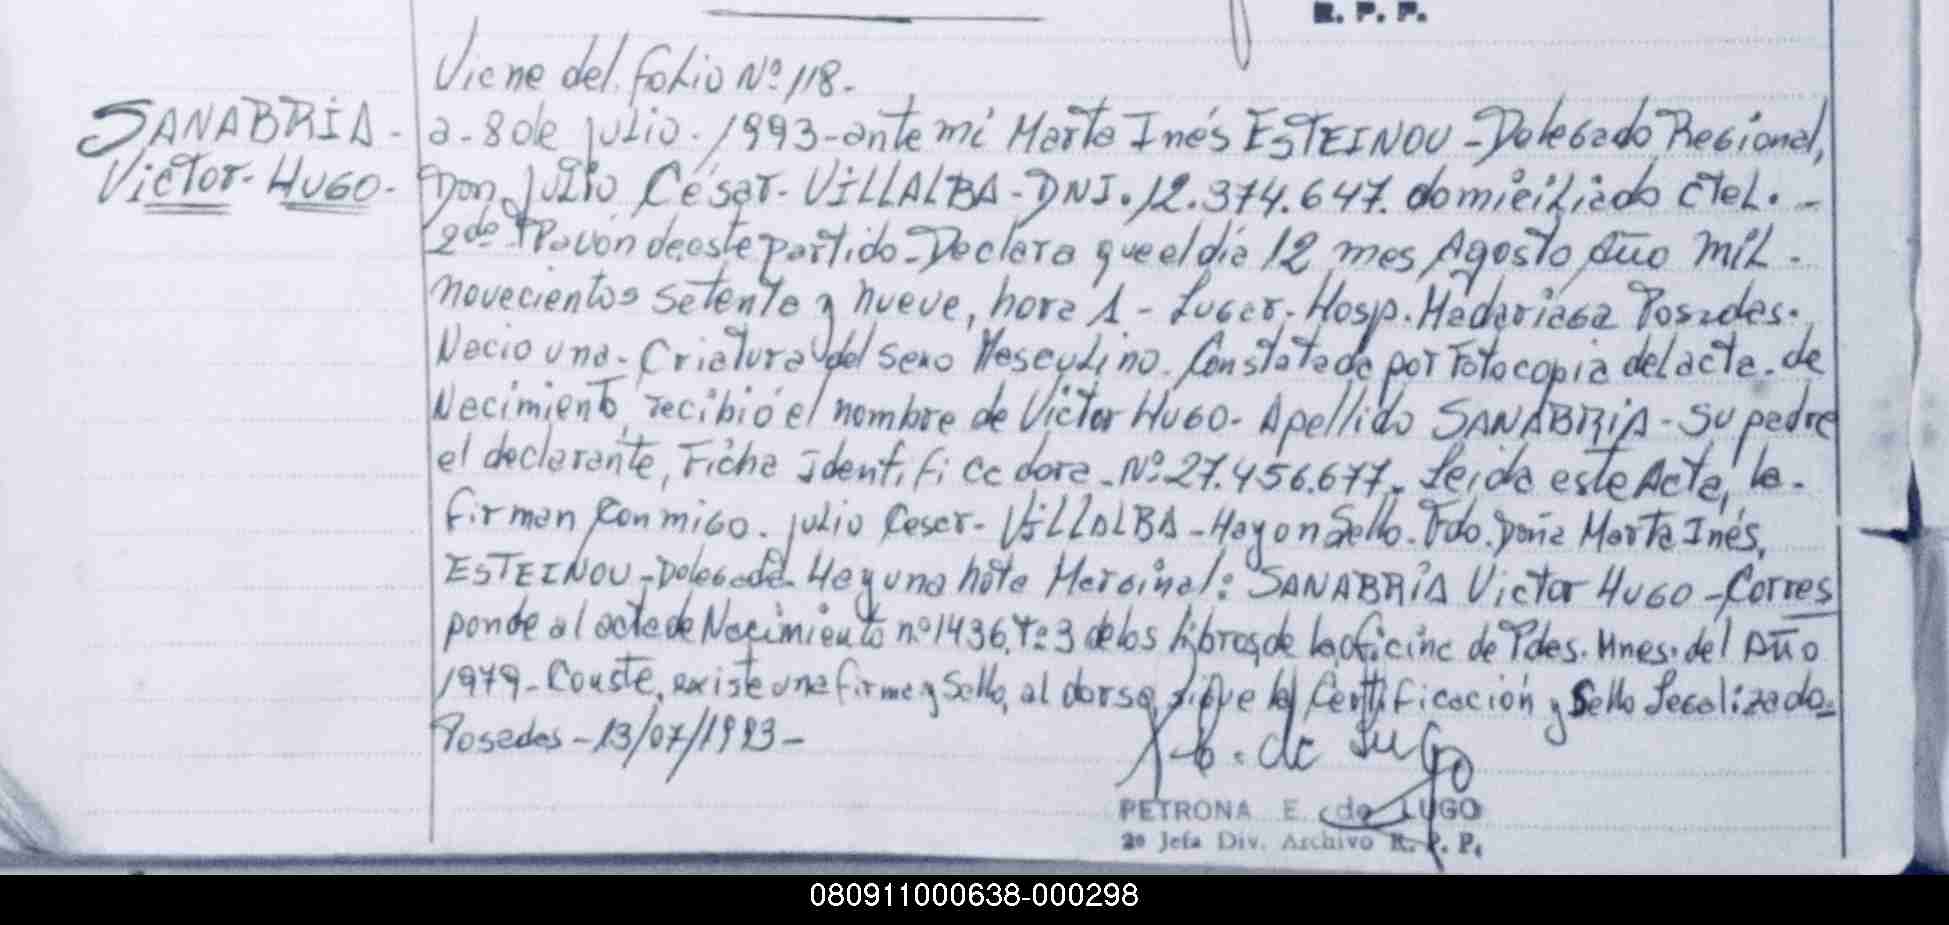 R. P. P.
Viene del folio Nº 118.
SANABRIA -
Victor - HUGO -
a - 8 de julio - 1993 - ante mi Marta Inés ESTEINOU - Delegado Regional,
Don, Julio César - VILLALBA - DNI. 12.374.647. domiciliado Ctel. -
2do Pavón de este partido - Declara que el día 12 mes Agosto Año mil -
novecientos setenta y nueve, hora 1 - Lugar - Hosp. Madariaga Posadas.
Nacio una - Criatura del sexo Masculino. Constatada por Fotocopia del acta - de
Nacimiento, recibió el nombre de Victor HUGO - Apellido SANABRIA - su padre
el declarante, Ficha Identificadora - Nº 27.456.677. Leida este Acta, la -
firman conmigo. Julio Cesar - VILLALBA - Hay on Sello. Fdo. Doña Marta Inés,
ESTEINOU - Delegada. Hay una nota Marginal: SANABRIA Victor HUGO - Corres
ponde al acta de Nacimiento nº 1436. Tº 3 de los libros de la oficina de Pdas. Mnes. del Año
1979 - Conste, existe una firma y Sello, al dorso sigue la Certificación y Sello Legalizado =
Posadas - 13/07/1993 -
de Lugo
PETRONA E. de LUGO
2º Jefa Div. Archivo R. P. P.
080911000638-000298